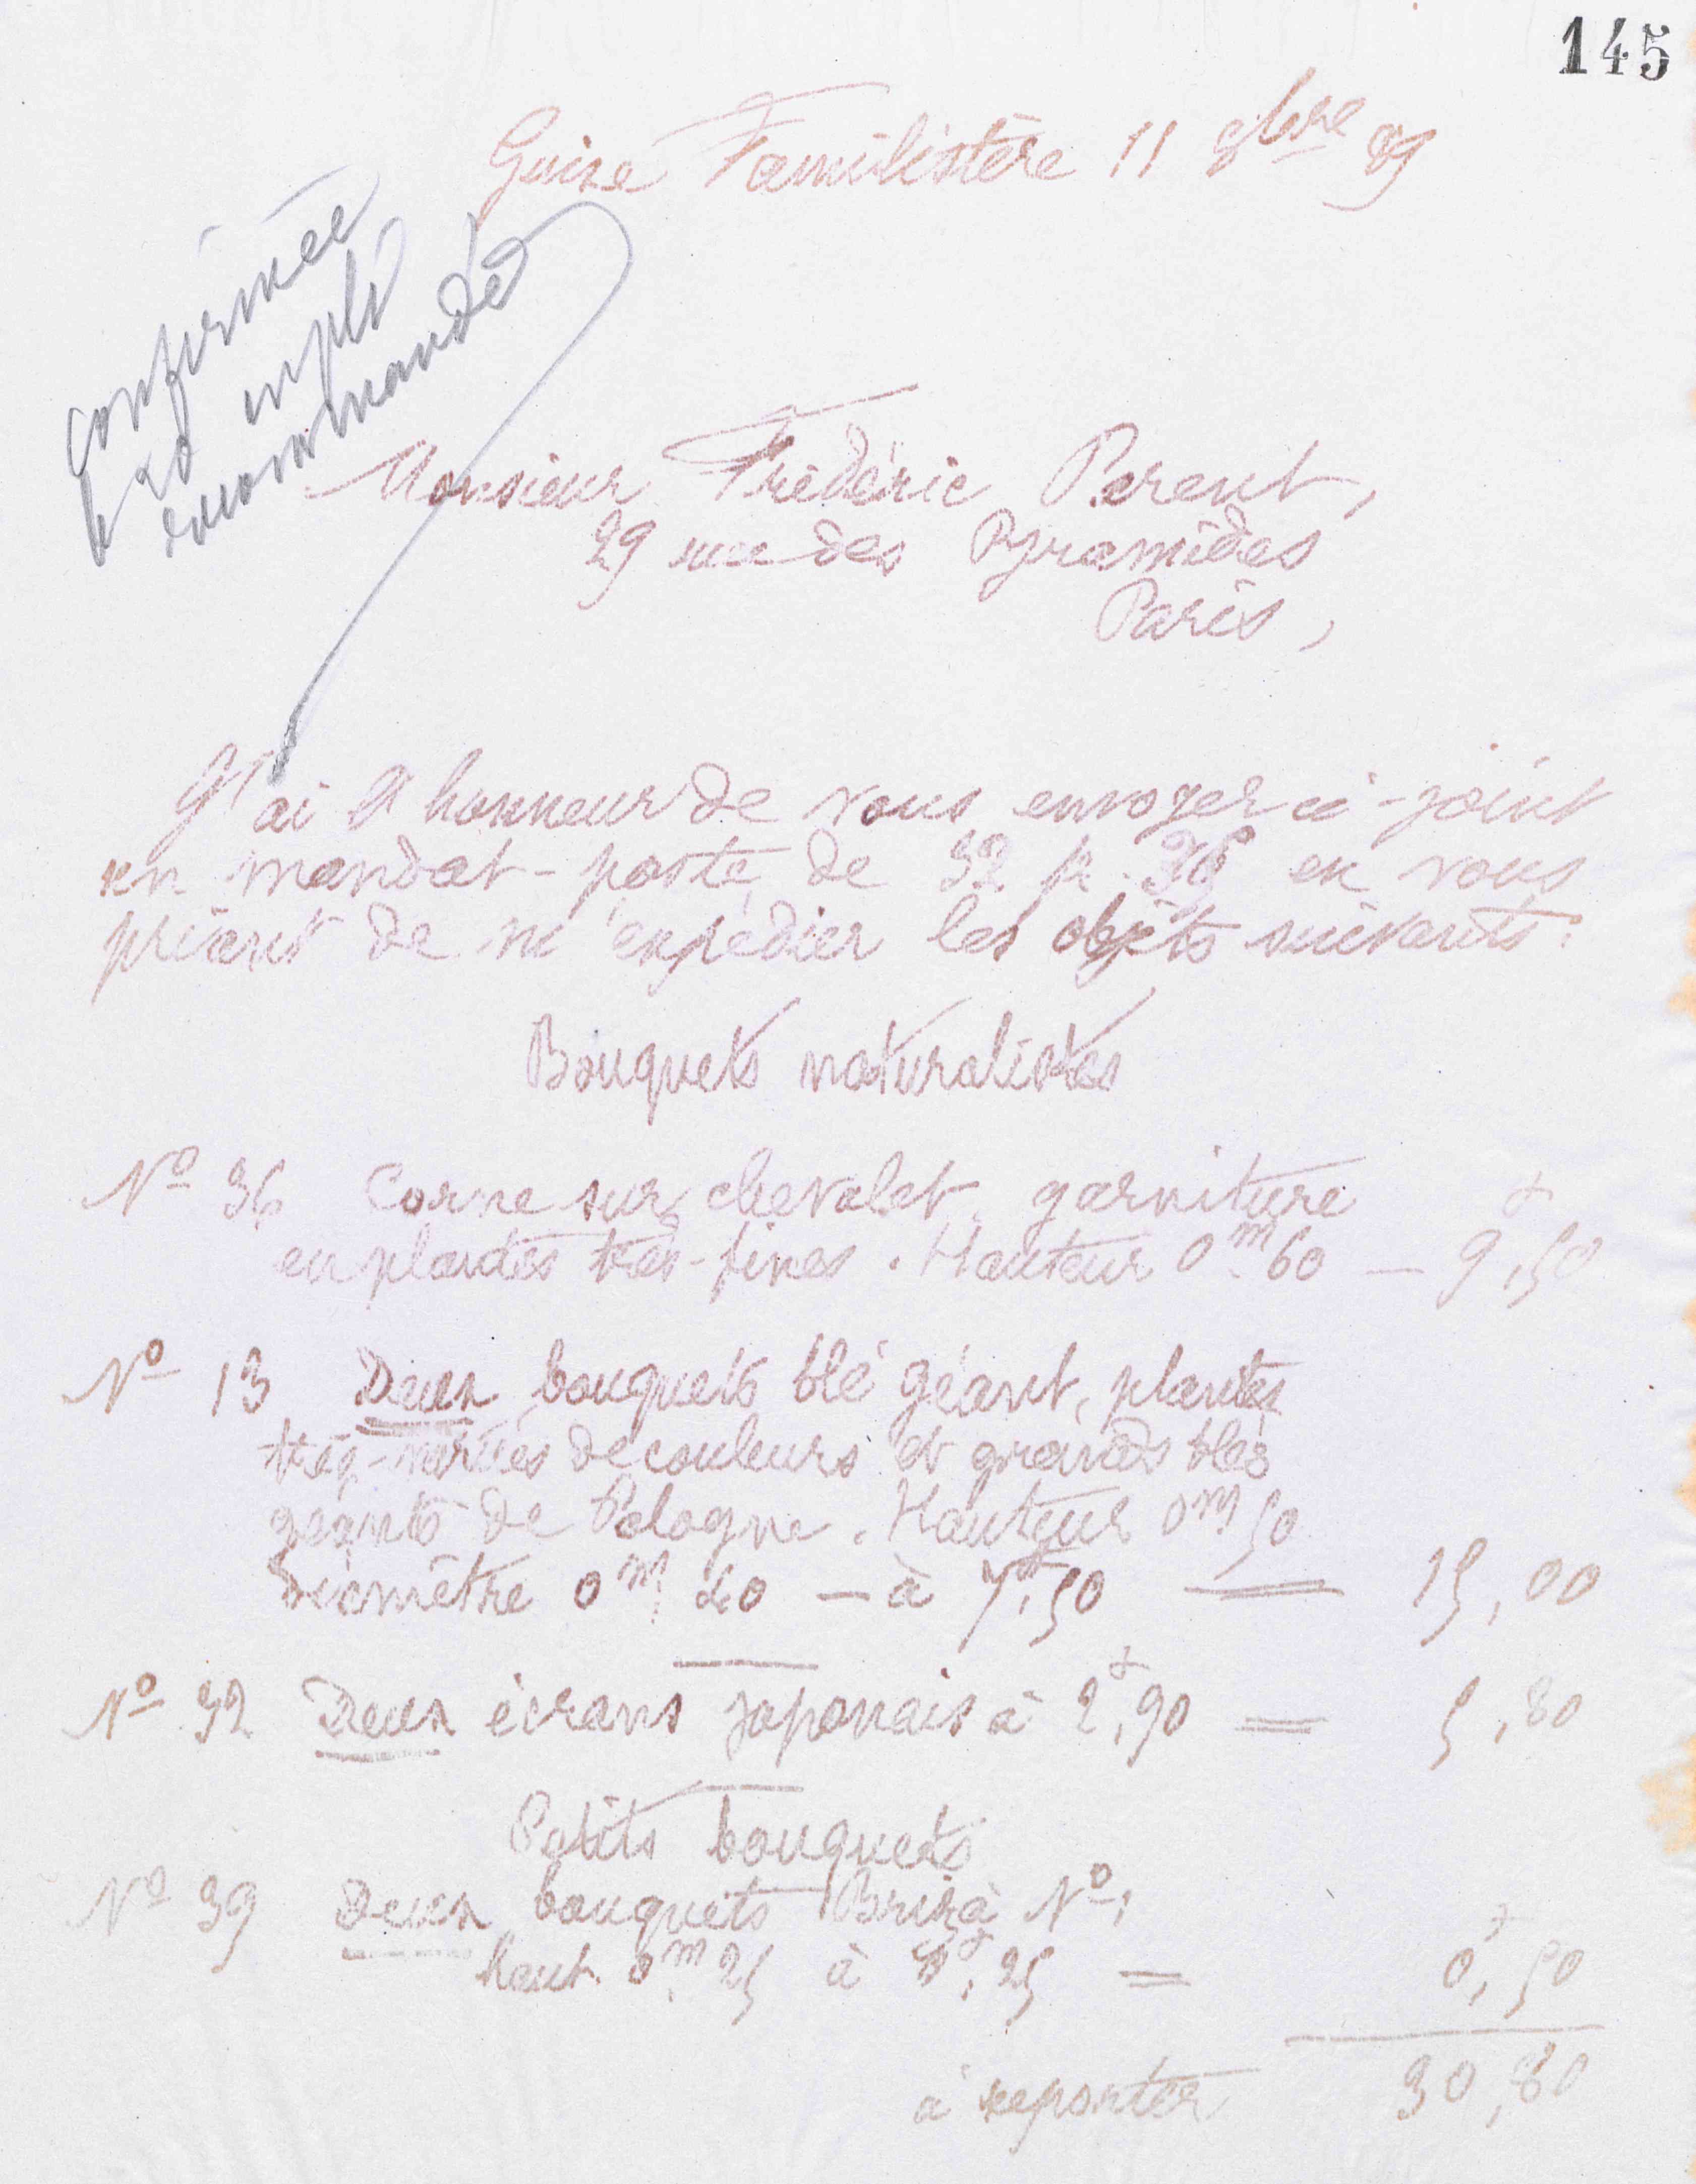 145
Guise Familistère 11 8bre 89
confirmée
le 20 en pli
recommandé
Monsieur Frédéric Parent,
29 rue des Pyramides
Paris,
J'ai l'honneur de vous envoyer ci-joint
un mandat-poste de 32 fr. en vous
priant de m'expédier les objets suivants:
Bouquets naturalistes
No 36 Corne sur chevalet, garniture
en plantes très-fines. Hauteur 0m.60 — 9f,50
No 13 Deux bouquets blé géant, plantes
très-variées de couleurs et grands blés
géants de Pologne. Hauteur 0m50
diamètre 0m,40 — à 7f,50 = 15,00
No 32 Deux écrans japonais à 2f,90 = 5,80
Petits bouquets
No 39 Deux bouquets Briza No 1
haut. 0m,25 à 0f,25 = 0f,50
à reporter 30,80